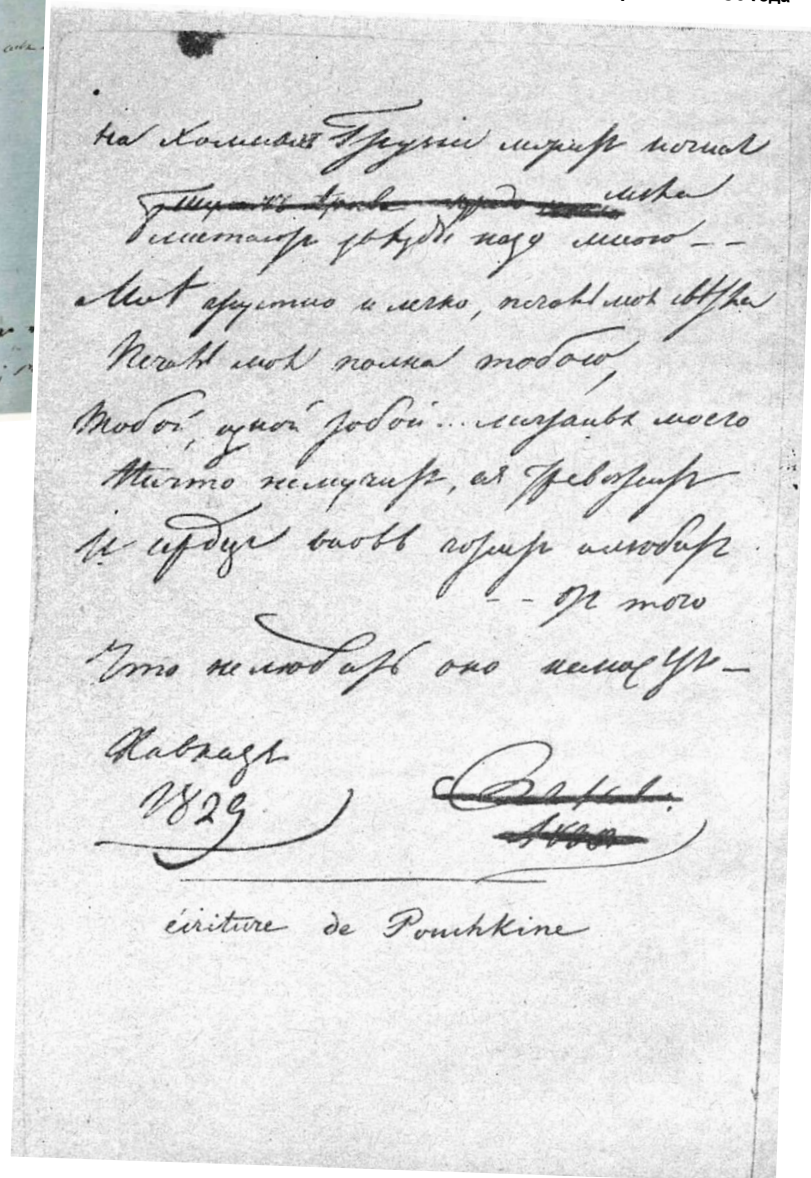 года
на холмахъ Грузіи лежитъ ночная
мгла
блистаютъ звѣзды надо мною - -
Мнѣ грустно и легко, печаль моя свѣтла
Печаль моя полна тобою,
Тобой, одной тобой... мечтанья моего
Ничто немучитъ, не тревожитъ
И сердце вновь горитъ илюбитъ
- - отъ того
Что нелюбить оно неможетъ —
Кавказъ
1829
écriture de Pouchkine